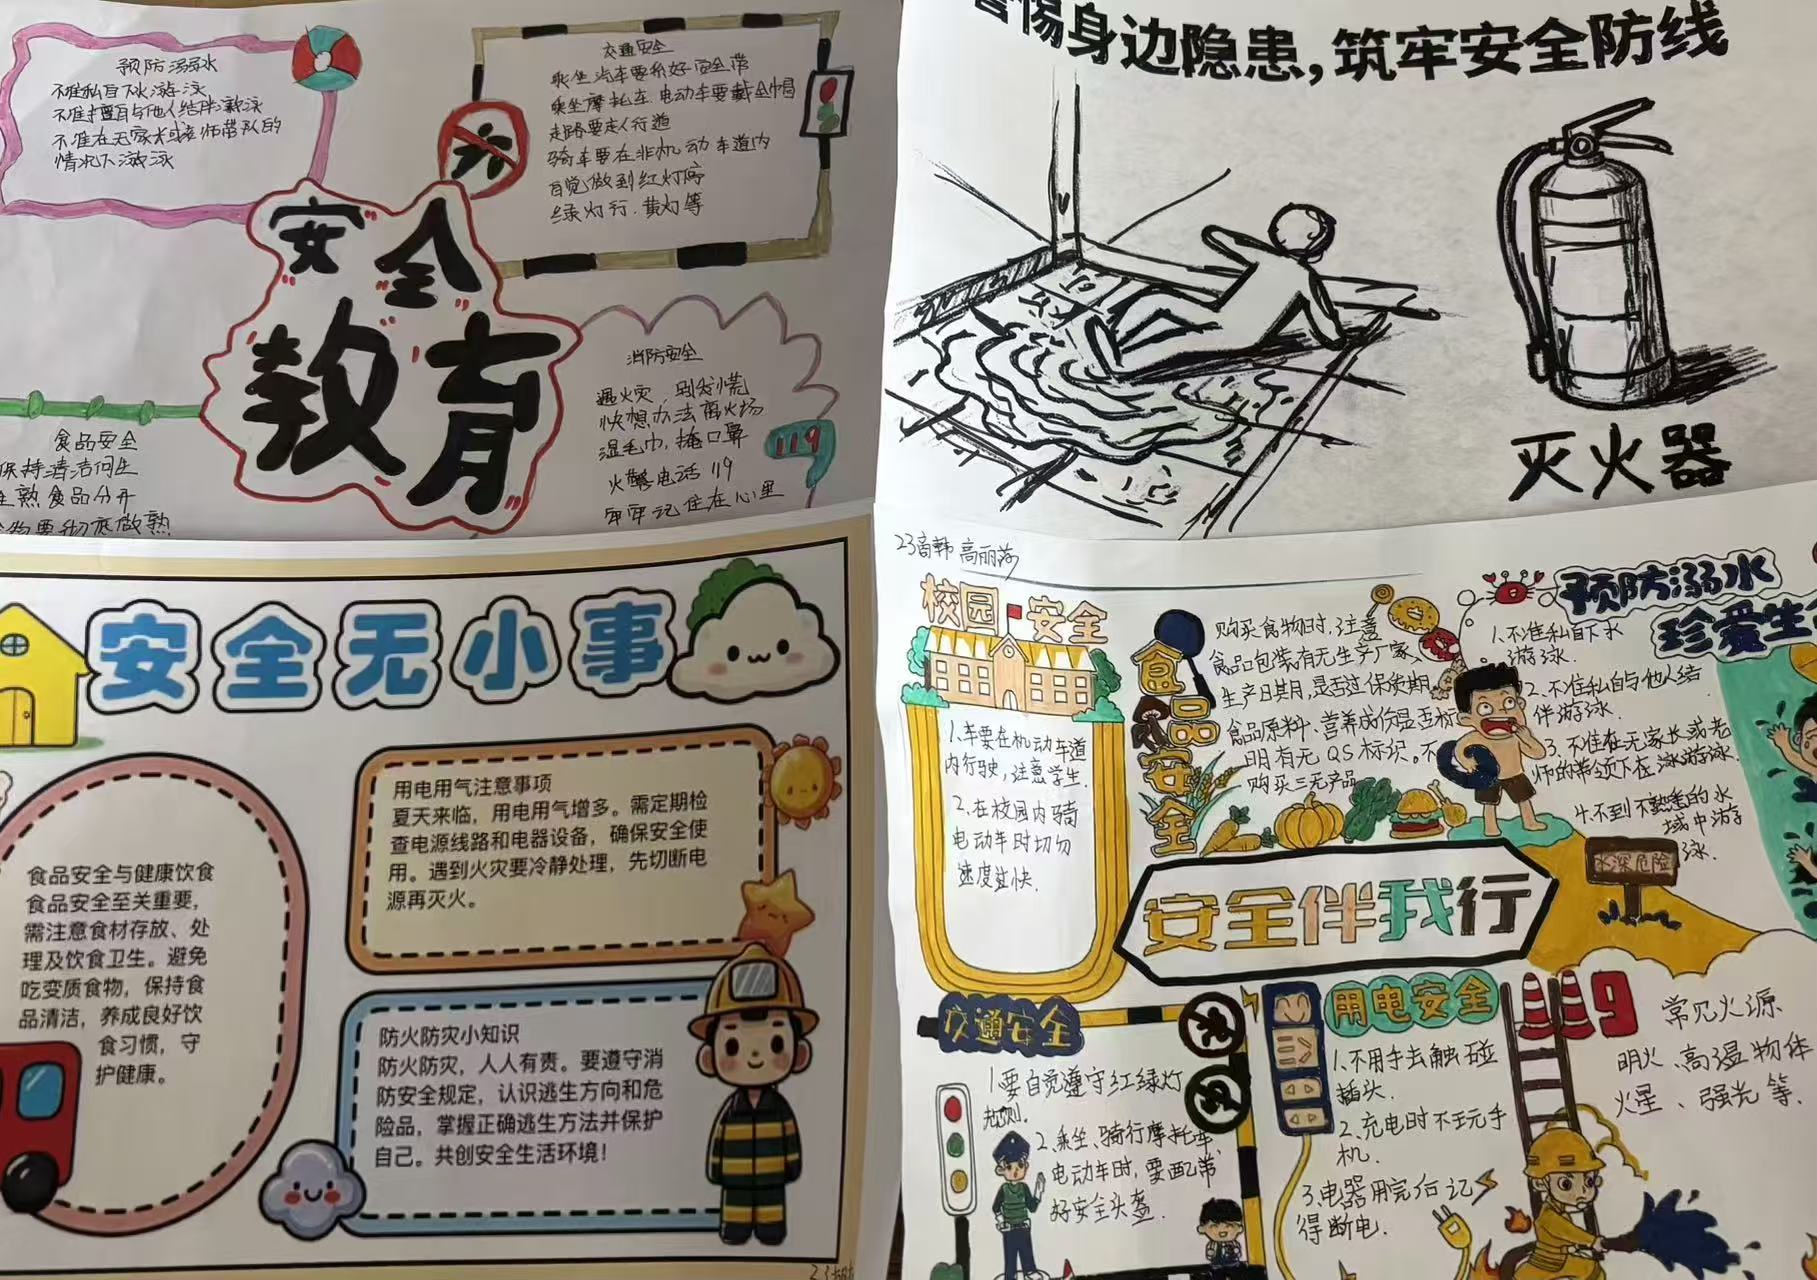 预防溺水
不准私自下水游泳
不准擅自与他人结伴游泳
不准在无家长或老师带队的
情况下游泳
交通安全
乘坐汽车要系好安全带
乘坐摩托车、电动车要戴全帽
走路要走人行道
骑车要在非机动车道内
自觉做到红灯停
绿灯行、黄灯等
安全
教育
消防安全
遇火灾,别发慌
快想办法离火场
湿毛巾,掩口鼻
火警电话119
牢牢记住在心里
119
食品安全
保持清洁
生熟食品分开
物要彻底做熟
惕身边隐患,筑牢安全防线
灭火器
安全无小事
食品安全与健康饮食
食品安全至关重要,
需注意食材存放、处
理及饮食卫生。避免
吃变质食物,保持食
品清洁,养成良好饮
食习惯,守
护健康。
用电用气注意事项
夏天来临,用电用气增多。需定期检
查电源线路和电器设备,确保安全使
用。遇到火灾要冷静处理,先切断电
源再灭火。
防火防灾小知识
防火防灾,人人有责。要遵守消
防安全规定,认识逃生方向和危
险品,掌握正确逃生方法并保护
自己。共创安全生活环境!
23商韩 高丽
校园安全
1.车要在机动车道
内行驶,注意学生.
2.在校园内骑
电动车时切勿
速度过快.
食品安全
购买食物时,注意
食品包装有无生产厂家、
生产日期,是否过保质期,
食品原料、营养成份是否标
明有无QS标识。不
购买三无产品
预防溺水
珍爱生
1.不准私自下水
游泳.
2.不准私自与他人结
伴游泳.
3.不准在无家长或老
师的带领下在泳游泳.
4.不到不熟悉的水
域中游
泳.
水深危险
安全伴我行
交通安全
1.要自觉遵守红绿灯
规则.
2.乘坐、骑行摩托车、
电动车时,要配带
好安全头盔.
用电安全
1.不用手去触碰
插头.
2.充电时不玩手
机.
3.电器用完后记
得断电.
9
常见火源
明火、高温物体
火星、强光等.